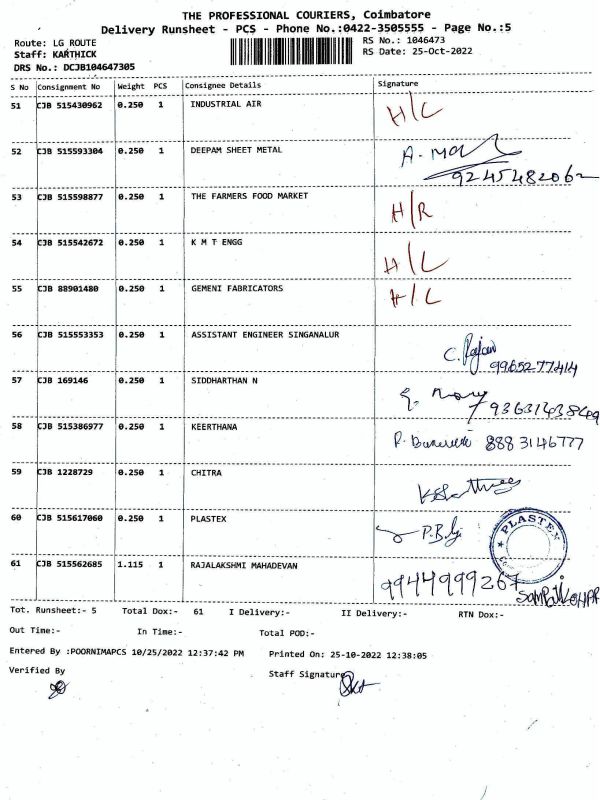 THE PROFESSIONAL COURIERS, Coimbatore
Delivery Runsheet - PCS - Phone No.:0422-3505555 - Page No.:5
Route: LG ROUTE
RS No.: 1046473
Staff: KARTHICK
RS Date: 25-Oct-2022
DRS No.: DCJB104647305
S No Consignment No Weight PCS Consignee Details Signature
51 CJB 515430962 0.250 1 INDUSTRIAL AIR H/C
52 CJB 515593304 0.250 1 DEEPAM SHEET METAL A.
9245482062
53 CJB 515598877 0.250 1 THE FARMERS FOOD MARKET H/R
54 CJB 515542672 0.250 1 K M T ENGG H/L
55 CJB 88901480 0.250 1 GEMENI FABRICATORS H/C
56 CJB 515553353 0.250 1 ASSISTANT ENGINEER SINGANALUR C.
9965277414
57 CJB 169146 0.250 1 SIDDHARTHAN N
58 CJB 515386977 0.250 1 KEERTHANA 8883146777
59 CJB 1228729 0.250 1 CHITRA
60 CJB 515617060 0.250 1 PLASTEX P.B. PLASTEX
61 CJB 515562685 1.115 1 RAJALAKSHMI MAHADEVAN 9944999267
Tot. Runsheet:- 5 Total Dox:- 61 I Delivery:- II Delivery:- RTN Dox:-
Out Time:- In Time:- Total POD:-
Entered By :POORNIMAPCS 10/25/2022 12:37:42 PM Printed On: 25-10-2022 12:38:05
Verified By Staff Signature